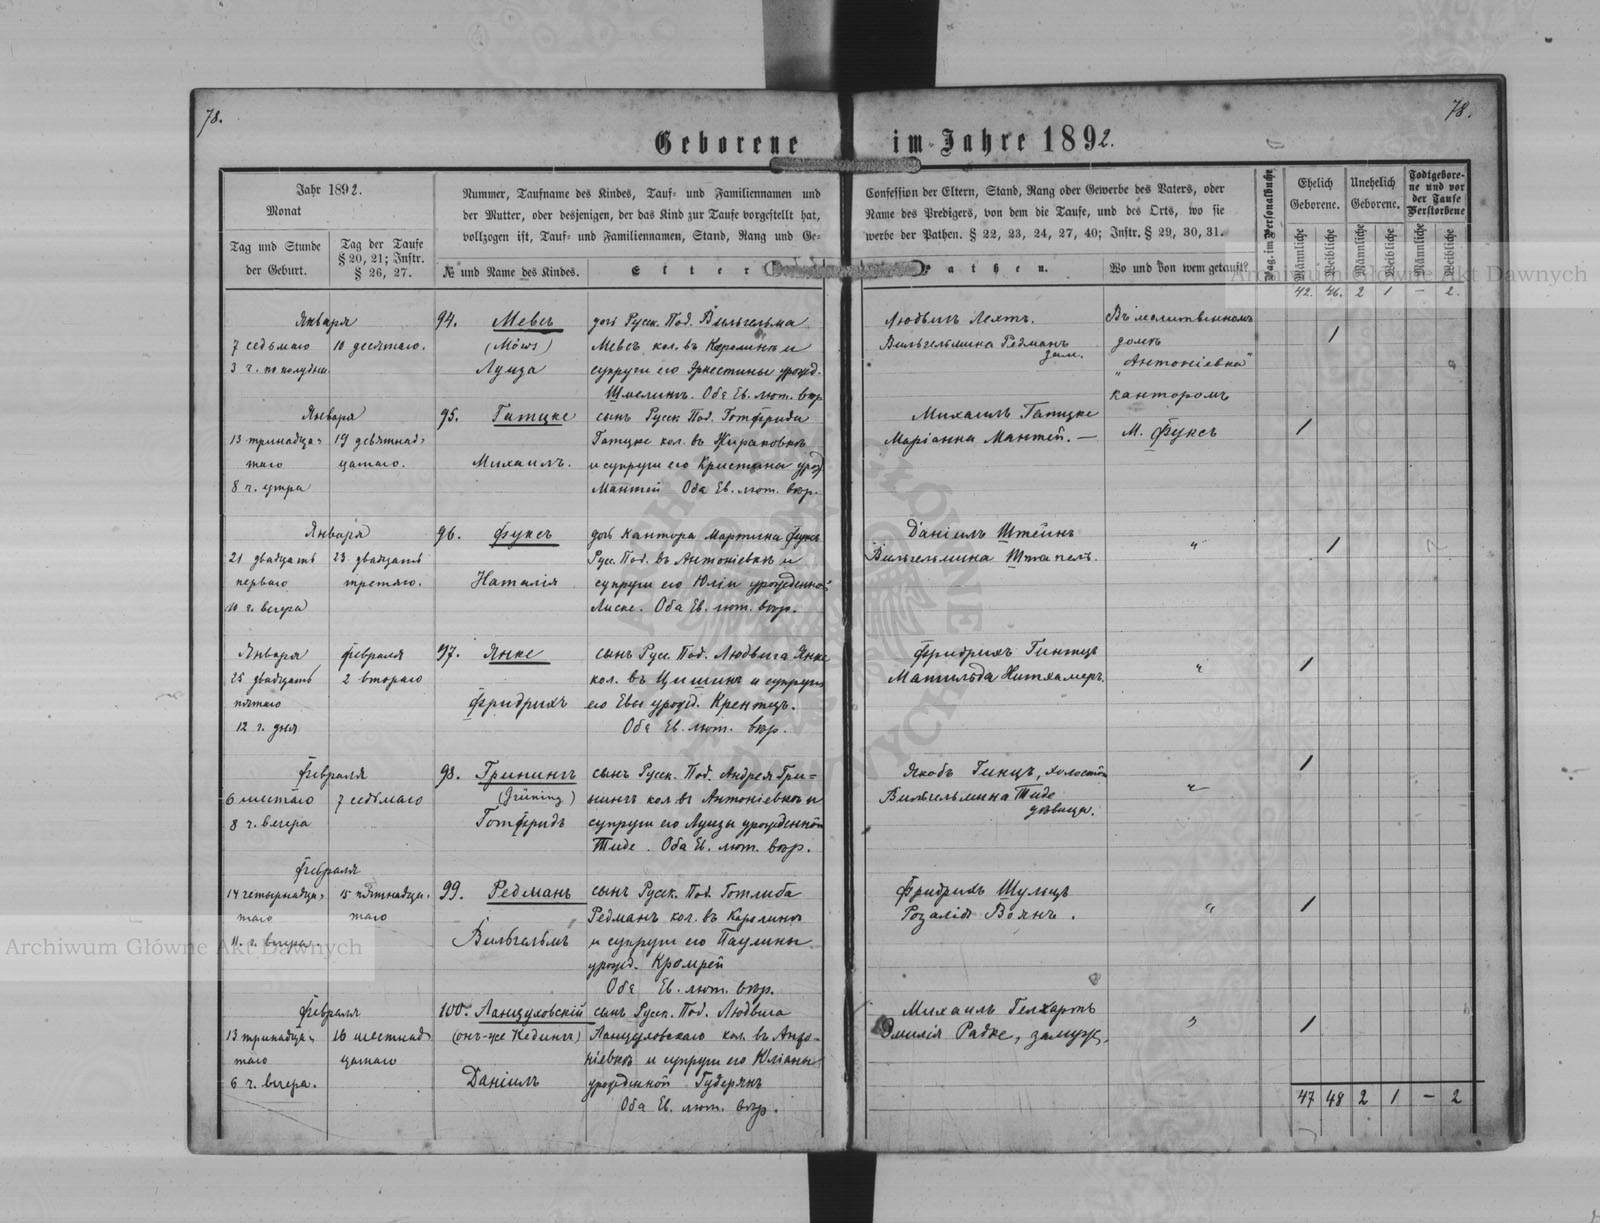 78.
78.
Geborene im Jahre 1892.
Jahr 1892.
Monat
Tag und Stunde
der Geburt.
Tag der Taufe
§ 20, 21; Instr.
§ 26, 27.
Nummer, Taufname des Kindes, Tauf= und Familiennamen und
der Mutter, oder desjenigen, der das Kind zur Taufe vorgestellt hat,
vollzogen ist, Tauf= und Familiennamen, Stand, Rang und Ge=
№ und Name des Kindes.
Elter
Confession der Eltern, Stand, Rang oder Gewerbe des Vaters, oder
Name des Predigers, von dem die Taufe, und des Orts, wo sie
werbe der Pathen. § 22, 23, 24, 27, 40; Instr. § 29, 30, 31.
Pathen.
Wo und von wem getauft?
Pag. im Personalbuche
Ehelich
Geborene.
Unehelich
Geborene.
Todtgebore-
ne und vor
der Taufe
Verstorbene
Männliche
Weibliche
Männliche
Weibliche
Männliche
Weibliche
42. 46. 2 1 – 2.
Января
7 седьмаго
3 ч. по полудни
10 десятаго.
94. Мевсъ
(Möws)
Луиза
дочь Русск. Под. Вильгельма
Мевсъ кол. въ Каролинѣ и
супруги его Эрнестины урожд.
Шмелингъ. Оба Ев. лют. вѣр.
Людвигъ Лехтъ.
Вильгельмина Редманъ
зам.
Въ молитвенномъ
домѣ
"Антоніевка"
канторомъ
М. Фуксъ
1
Января
13 тринадца-
таго
8 ч. утра
19 девятнад-
цатаго.
95. Гатцке
Михаилъ.
сынъ Русск. Под. Готфрида
Гатцке кол. въ Жираковкѣ
и супруги его Кристины урож
Мантей Оба Ев. лют. вѣр.
Михаилъ Гатцке
Маріанна Мантей. —
1
Января
21 двадцать
перваго
10 ч. вечера
23 двадцать
третяго.
96. Фуксъ
Наталія
дочь Кантора Мартина Фуксъ
Русс. Под. въ Антоніевкѣ и
супруги его Юліи урожденной
Лиске. Оба Ев. лют. вѣр.
Даніилъ Штейнъ
Вильгельмина Штапель.
"
1
Января
25 двадцать
пятаго
12 ч. дня
февраля
2 втораго
97. Янке
Фридрихъ
сынъ Русс. Под. Людвига Янке
кол. въ Цишинъ и супруги
его Евы урожд. Кренцъ.
Оба Ев. лют. вѣр.
Фридрихъ Гинтцъ
Матильда Нитхамеръ.
"
1
Февраля
6 шестаго
8 ч. вечера
7 седьмаго
98. Грингинъ
(Grüning)
Готфридъ
сынъ Русск. Под. Андрея Гри=
нингъ кол. въ Антоніевкѣ и
супруги его Луизы урожденной
Тиде. Оба Ев. лют. вѣр.
Якобъ Гинцъ, холостой
Вильгельмина Тиде
дѣвица.
"
1
Февраля
14 четырнадца-
таго
11. ч. вечера.
15 пятнадца-
таго
99. Редманъ
Вильгельмъ
сынъ Русск. Под. Готлиба
Редманъ кол. въ Каролинѣ
и супруги его Паулины
урожд. Кромрей
Оба Ев. лют. вѣр.
Фридрихъ Шульцъ
Розалія Воянъ.
"
1
Февраля
13 тринадца-
таго
6 ч. вечера.
16 шестнад
цатаго
100. Ланцуховскій
(онъ-же Кедингъ)
Даніилъ
сынъ Русск. Под. Людвига
Ланцуховскаго кол. въ Анто-
ніевкѣ и супруги его Юліаны
урожденной Гудерянъ
Оба Ев. лют. вѣр.
Михаилъ Гелхартъ
Эмилія Радке, замуж.
"
1
47 48 2 1 – 2
Archiwum Główne Akt Dawnych
Archiwum Główne Akt Dawnych